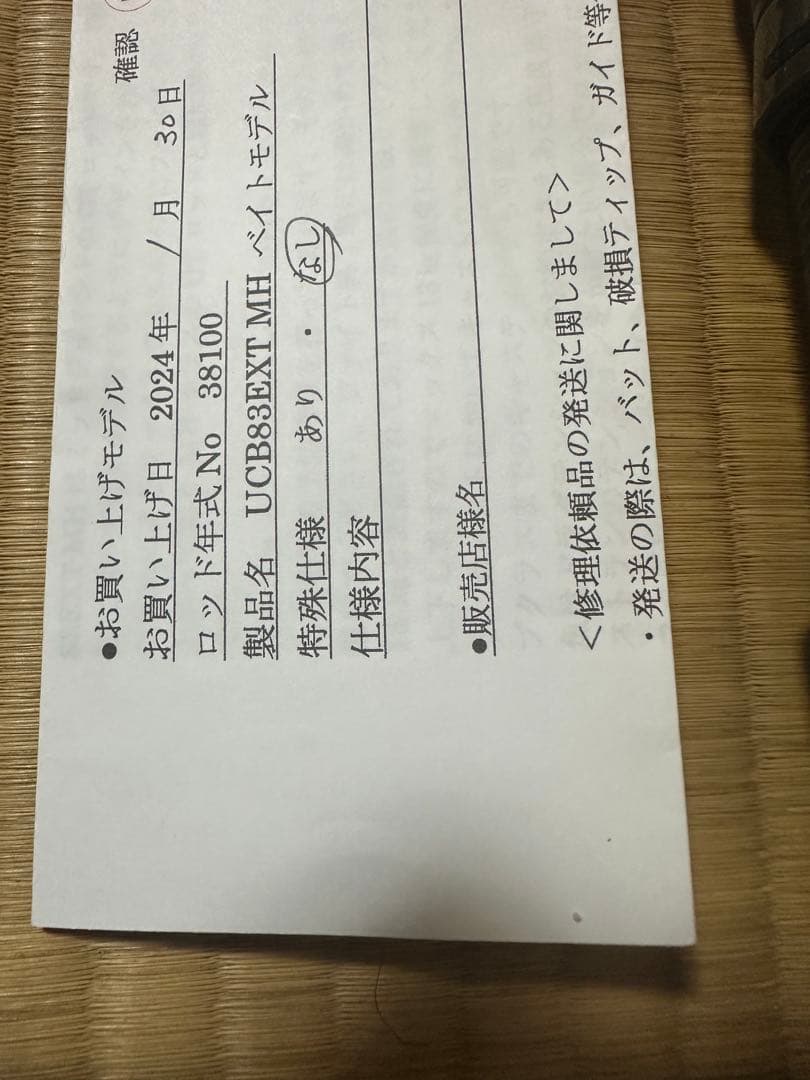 確認
●お買い上げモデル
お買い上げ日 2024年 1月 30日
ロッド年式No 38100
製品名 UCB83EXT MH ベイトモデル
特殊仕様 あり ・ なし
仕様内容
●販売店様名
＜修理依頼品の発送に関しまして＞
・発送の際は、バット、破損ティップ、ガイド等